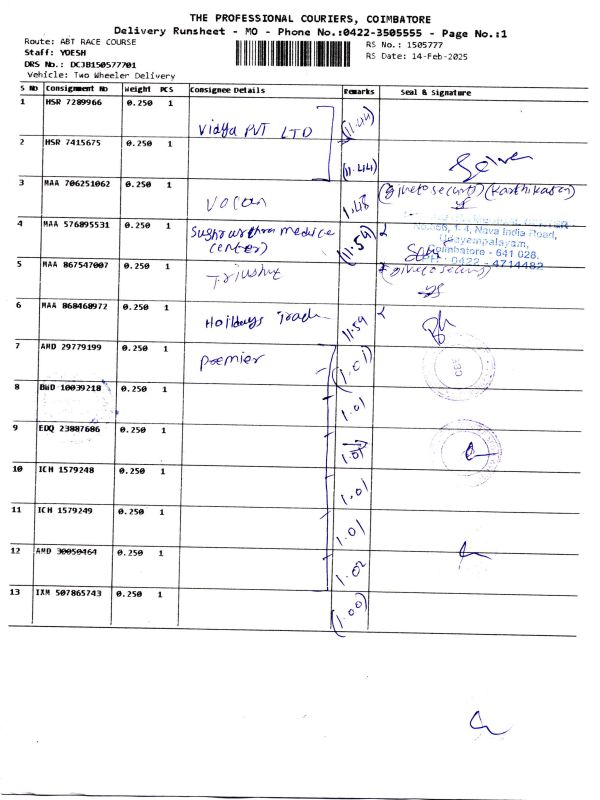 THE PROFESSIONAL COURIERS, COIMBATORE
Delivery Runsheet - MO - Phone No.:0422-3505555 - Page No.:1
Route: ABT RACE COURSE
RS No.: 1505777
Staff: YOESH
RS Date: 14-Feb-2025
DRS No.: DCJB150577701
Vehicle: Two Wheeler Delivery
S No Consignment No Weight PCS Consignee Details Remarks Seal & Signature
1 HSR 7289966 0.250 1 Vidya PVT LTD (11.44)
2 HSR 7415675 0.250 1 (11.44)
3 MAA 706251062 0.250 1 1.48 (give to security) (Karthikasan)
4 MAA 576895531 0.250 1 center) (11.59)
No.    , 1-4, Nava India Road,
Udayampalayam,
Coimbatore - 641 028.
PH : 0422 - 4714482
5 MAA 867547007 0.250 1 (give to security)
6 MAA 868468972 0.250 1 Holidays 11.59
7 AMD 29779199 0.250 1 premier (1.01)
8 BWD 10039218 0.250 1 1.01
9 EDQ 23887686 0.250 1 1.01
10 ICH 1579248 0.250 1 1.01
11 ICH 1579249 0.250 1 1.01
12 AMD 30050464 0.250 1 1.02
13 IXM 507865743 0.250 1 (1.00)